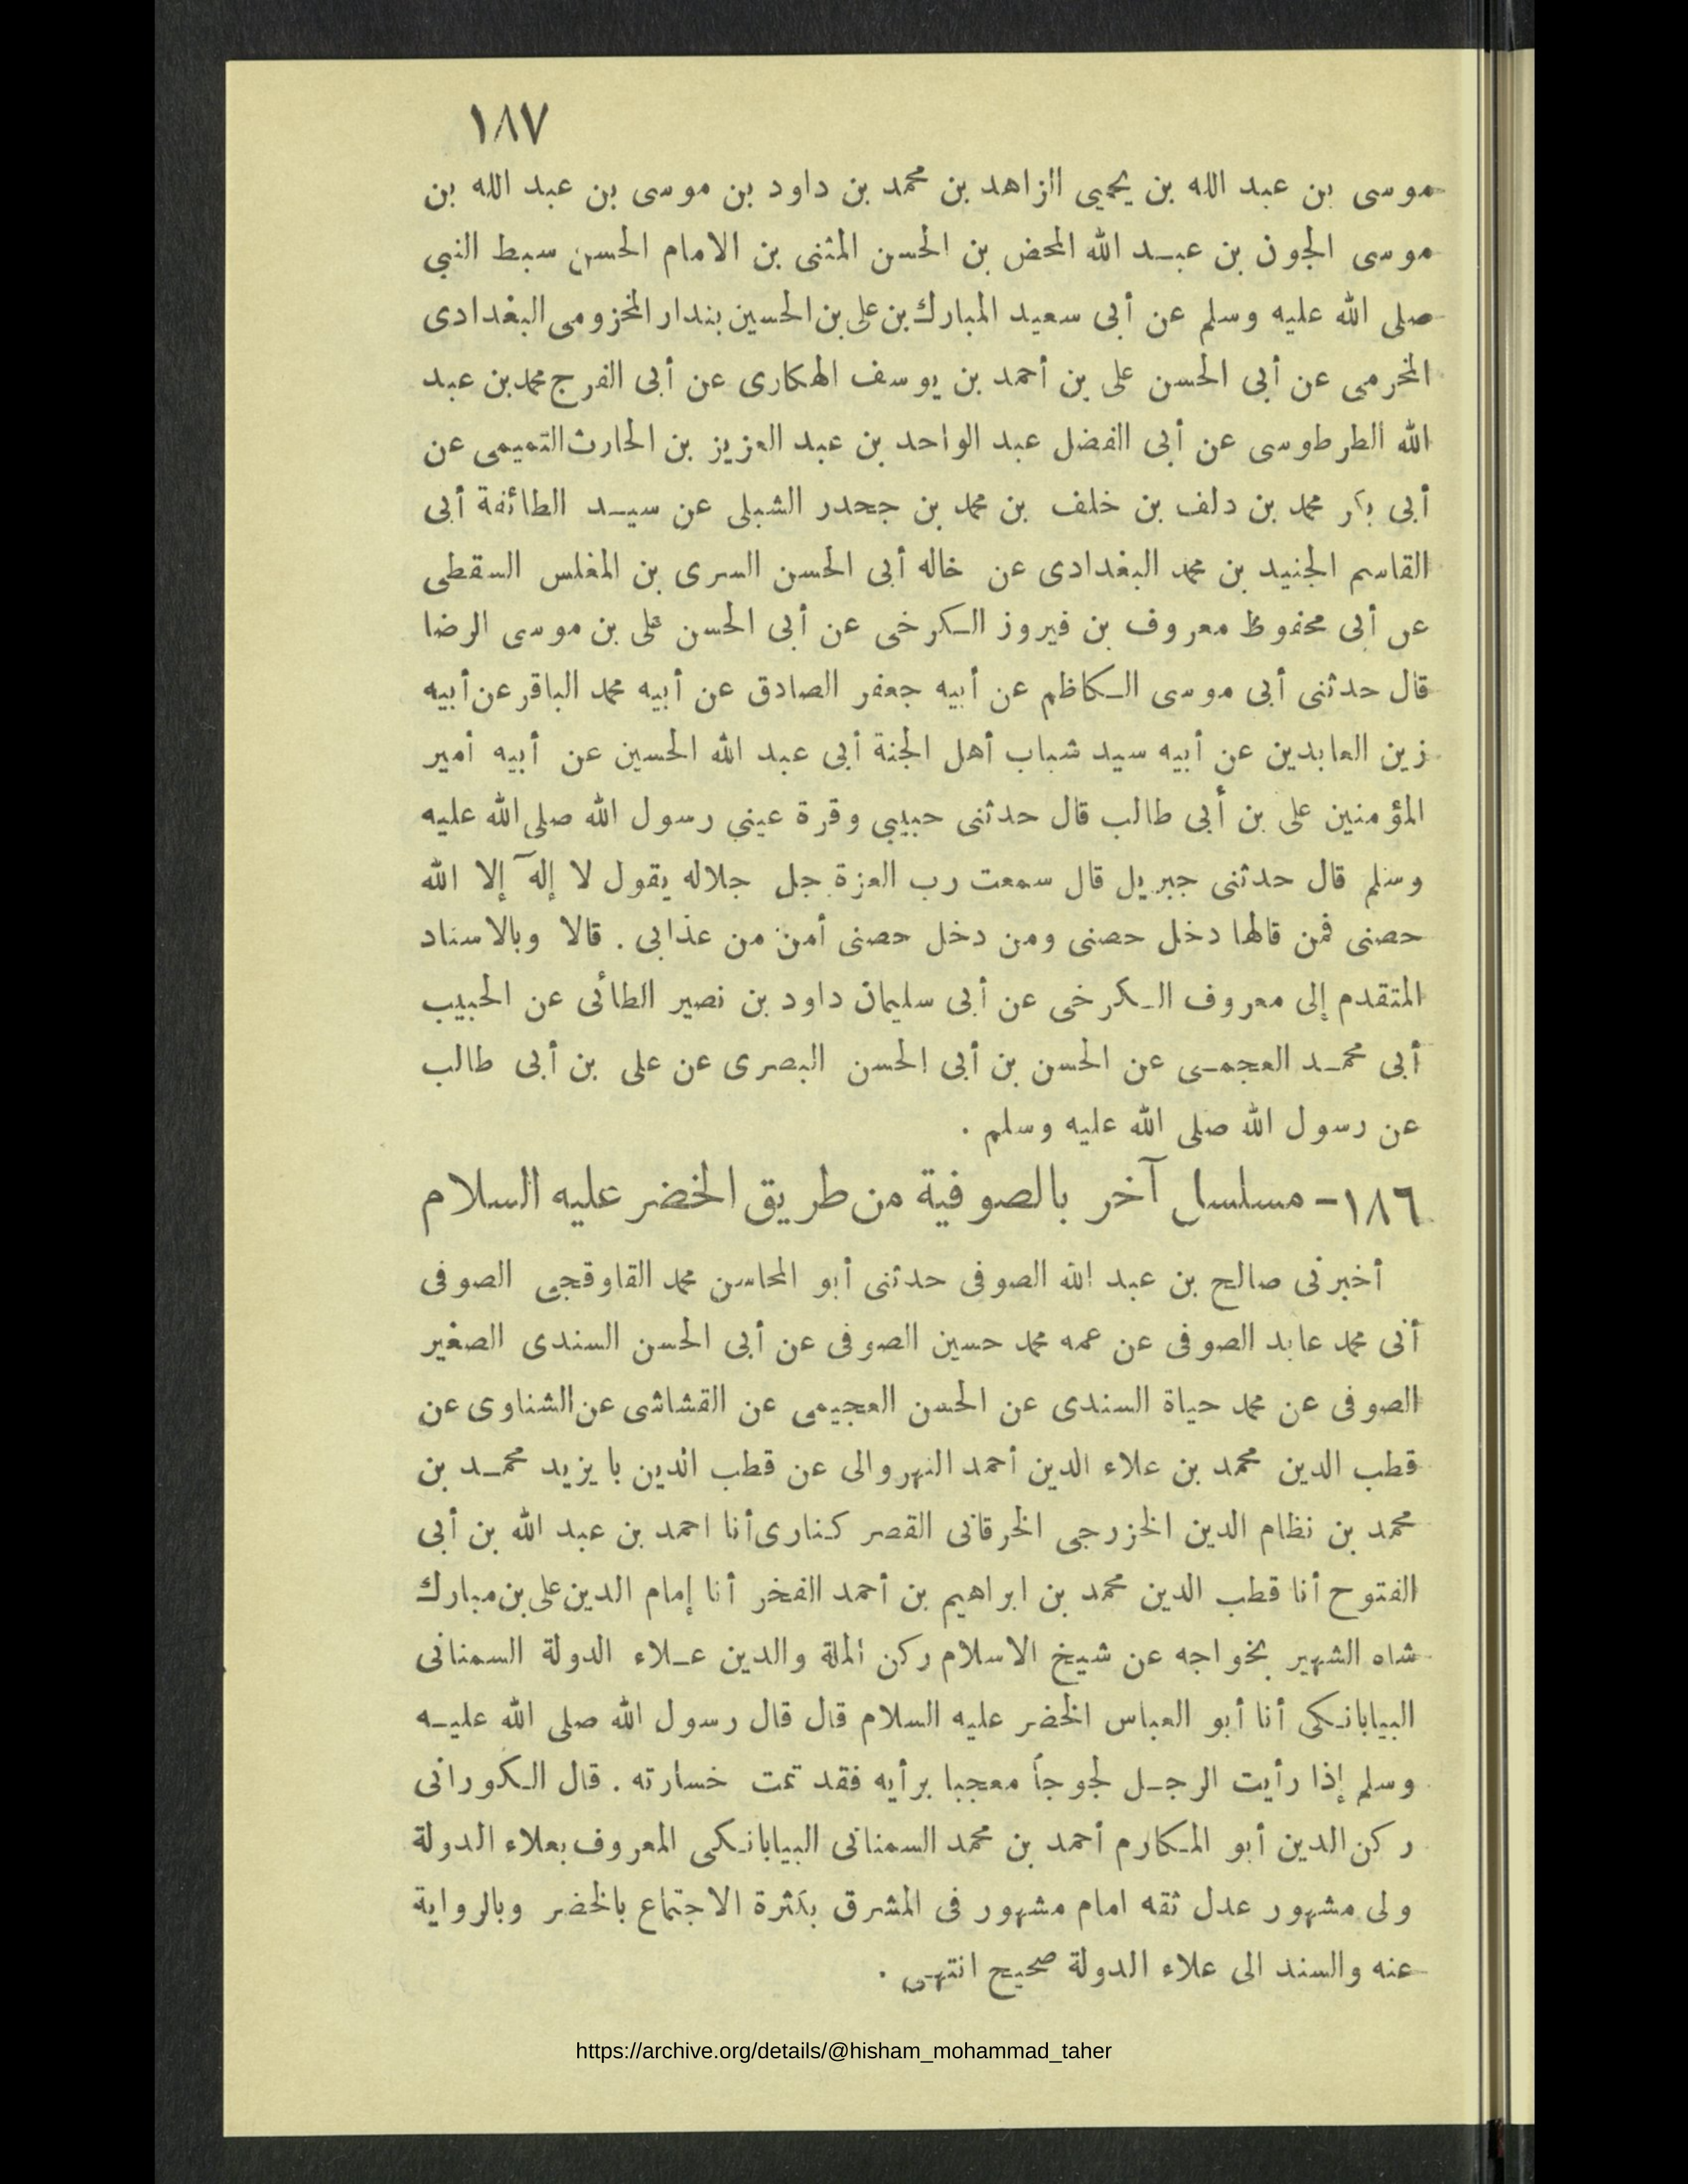 ١٨٧
موسى بن عبد الله بن يحيى الزاهد بن محمد بن داود بن موسى بن عبد الله بن
موسى الجون بن عبد الله المحض بن الحسن المثنى بن الامام الحسن سبط النبي
صلى الله عليه وسلم عن أبى سعيد المبارك بن على بن الحسين بندار المخزومى البغدادى
المخرمى عن أبى الحسن على بن أحمد بن يوسف الهكارى عن أبى الفرج محمد بن عبد
الله الطرطوسى عن أبى الفضل عبد الواحد بن عبد العزيز بن الحارث التميمى عن
أبى بكر محمد بن دلف بن خلف بن محمد بن جحدر الشبلى عن سيد الطائفة أبى
القاسم الجنيد بن محمد البغدادى عن خاله أبى الحسن السرى بن المغلس السقطى
عن أبى محفوظ معروف بن فيروز الكرخى عن أبى الحسن على بن موسى الرضا
قال حدثنى أبى موسى الكاظم عن أبيه جعفر الصادق عن أبيه محمد الباقر عن أبيه
زين العابدين عن أبيه سيد شباب أهل الجنة أبى عبد الله الحسين عن أبيه أمير
المؤمنين على بن أبى طالب قال حدثنى حبيبي وقرة عيني رسول الله صلى الله عليه
وسلم قال حدثنى جبريل قال سمعت رب العزة جل جلاله يقول لا إلٓه إلا الله
حصنى فمن قالها دخل حصنى ومن دخل حصنى أمن من عذابى . قالا وبالاسناد
المتقدم إلى معروف الكرخى عن أبى سليمان داود بن نصير الطائى عن الحبيب
أبى محمد العجمى عن الحسن بن أبى الحسن البصرى عن على بن أبى طالب
عن رسول الله صلى الله عليه وسلم .
١٨٦ - مسلسل آخر بالصوفية من طريق الخضر عليه السلام
أخبرنى صالح بن عبد الله الصوفى حدثنى أبو المحاسن محمد القاوقجى الصوفى
أنى محمد عابد الصوفى عن عمه محمد حسين الصوفى عن أبى الحسن السندى الصغير
الصوفى عن محمد حياة السندى عن الحسن العجيمى عن القشاشى عن الشناوى عن
قطب الدين محمد بن علاء الدين أحمد النهروالى عن قطب الدين بايزيد محمد بن
محمد بن نظام الدين الخزرجى الخرقانى القصر كنارى أنا احمد بن عبد الله بن أبى
الفتوح أنا قطب الدين محمد بن ابراهيم بن أحمد الفخر أنا إمام الدين على بن مبارك
شاه الشهير بخواجه عن شيخ الاسلام ركن الملة والدين علاء الدولة السمنانى
البيابانكى أنا أبو العباس الخضر عليه السلام قال قال رسول الله صلى الله عليه
وسلم إذا رأيت الرجل لجوجاً معجبا برأيه فقد تمت خسارته . قال الكورانى
ركن الدين أبو المكارم أحمد بن محمد السمنانى البيابانكى المعروف بعلاء الدولة
ولى مشهور عدل ثقه امام مشهور فى المشرق بكثرة الاجتماع بالخضر وبالرواية
عنه والسند الى علاء الدولة صحيح انتهى .
https://archive.org/details/@hisham_mohammad_taher